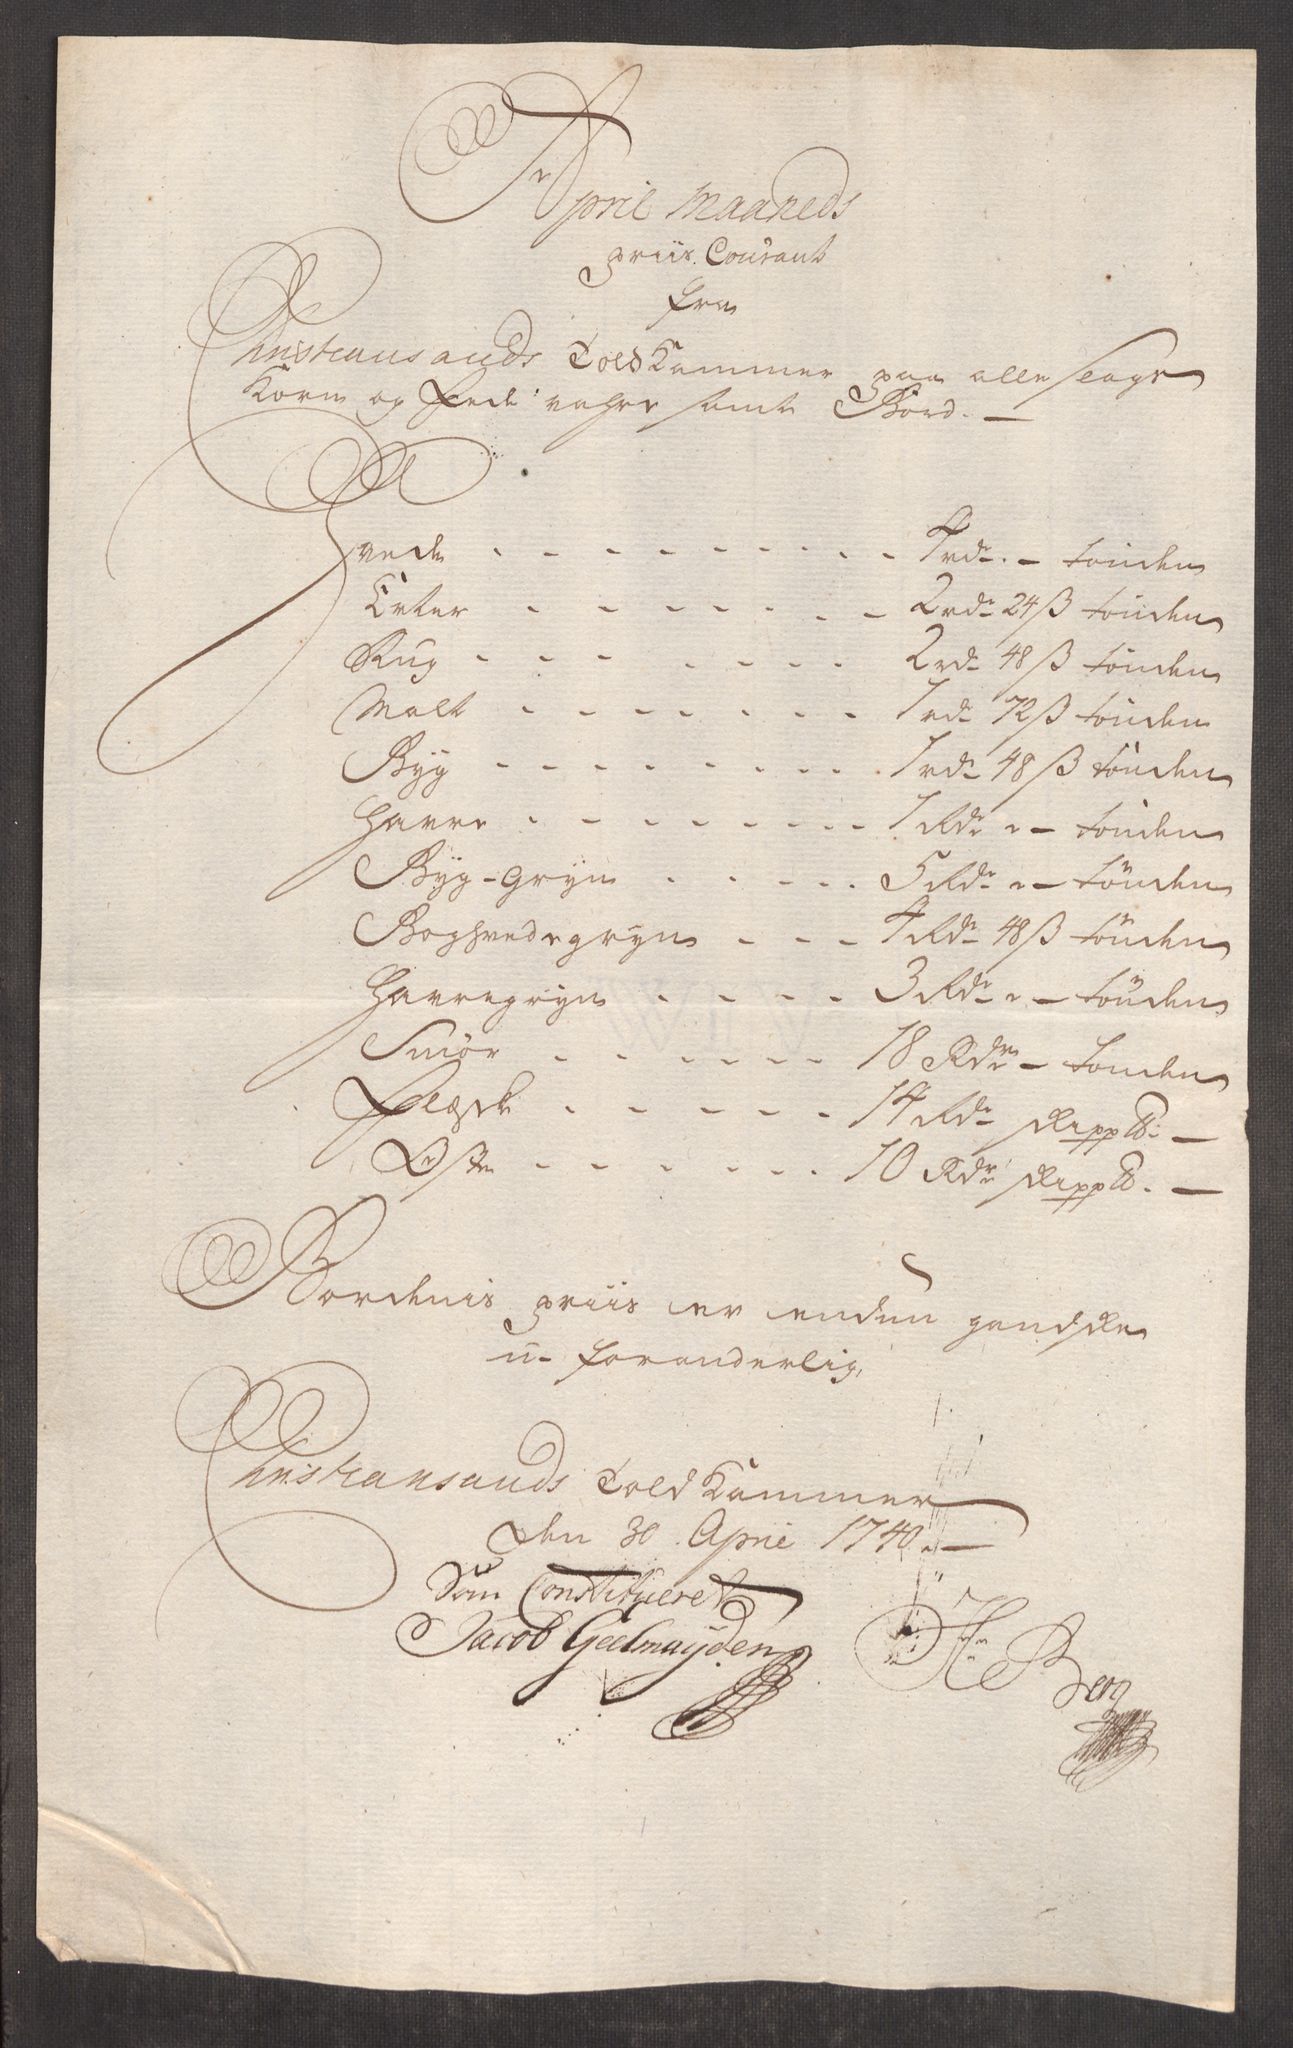 April Maaneds
priis Courant
fra
Christiansands Told Kammer paa alle slags
Korn og fede vahre samt Bord. —
Hvede - - - - - - - - - 4 rdr. — tönden
Erter - - - - - - - 2 rdr 24 ß tönden
Rug - - - - - - - 2 rdr 48 ß tönden
Malt - - - - - - - 1 rdr 72 ß tönden
Byg - - - - - - - - - 1 rdr 48 ß tönden
Havre - - - - - - - - - 1 Rdr " — tönden
Byg-Gryn - - - - - 5 Rdr " — tönden
Boghvedegryn - - - 4 Rdr 48 ß tönden
Havregryn - - - - 3 Rdr " — tönden
Smör - - - - - - 18 Rdr — tonden
Flæsk - - - - - 14 Rdr skipp ℔. —
Oste - - - - - - 10 Rdr skipp ℔. —
Bordenis priis er endnu gandske
u-foranderlig,
Christiansands Told Kammer
den 30 April 1740. —
Som Constitueret
Jacob Geelmuyden H Berg